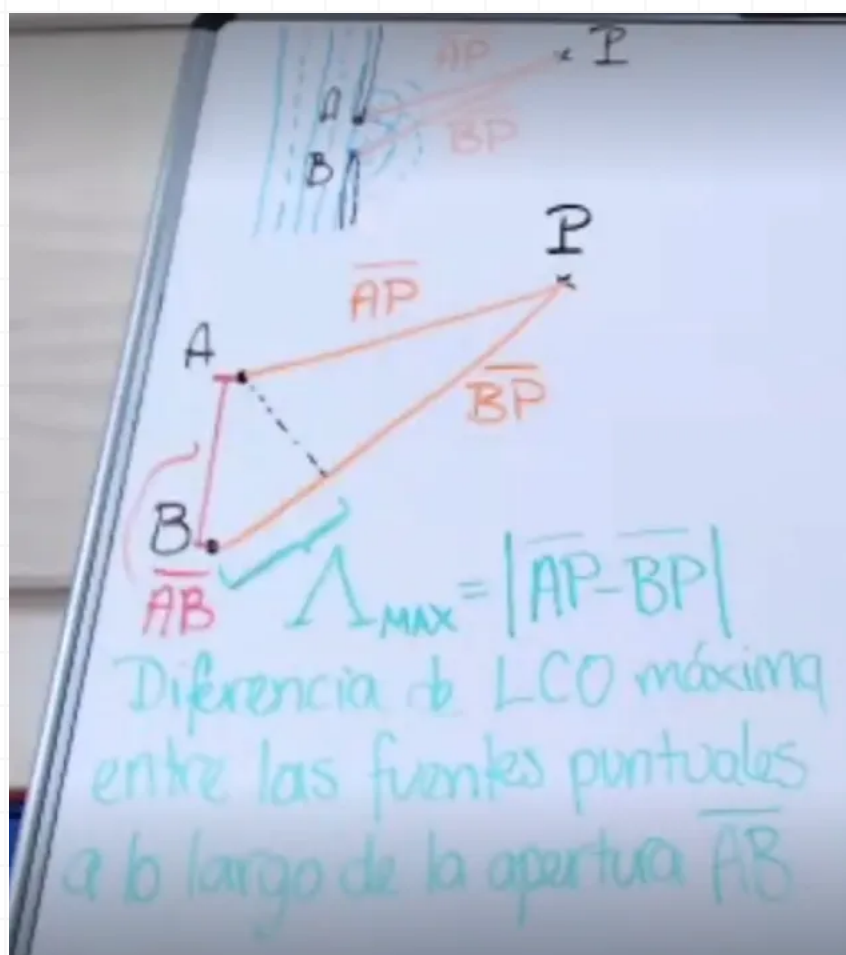 P
AP
A
BP
B
P
AP
A
BP
B
AB
Λ MAX = |AP - BP|
Diferencia de LCO máxima
entre las fuentes puntuales
a lo largo de la apertura AB